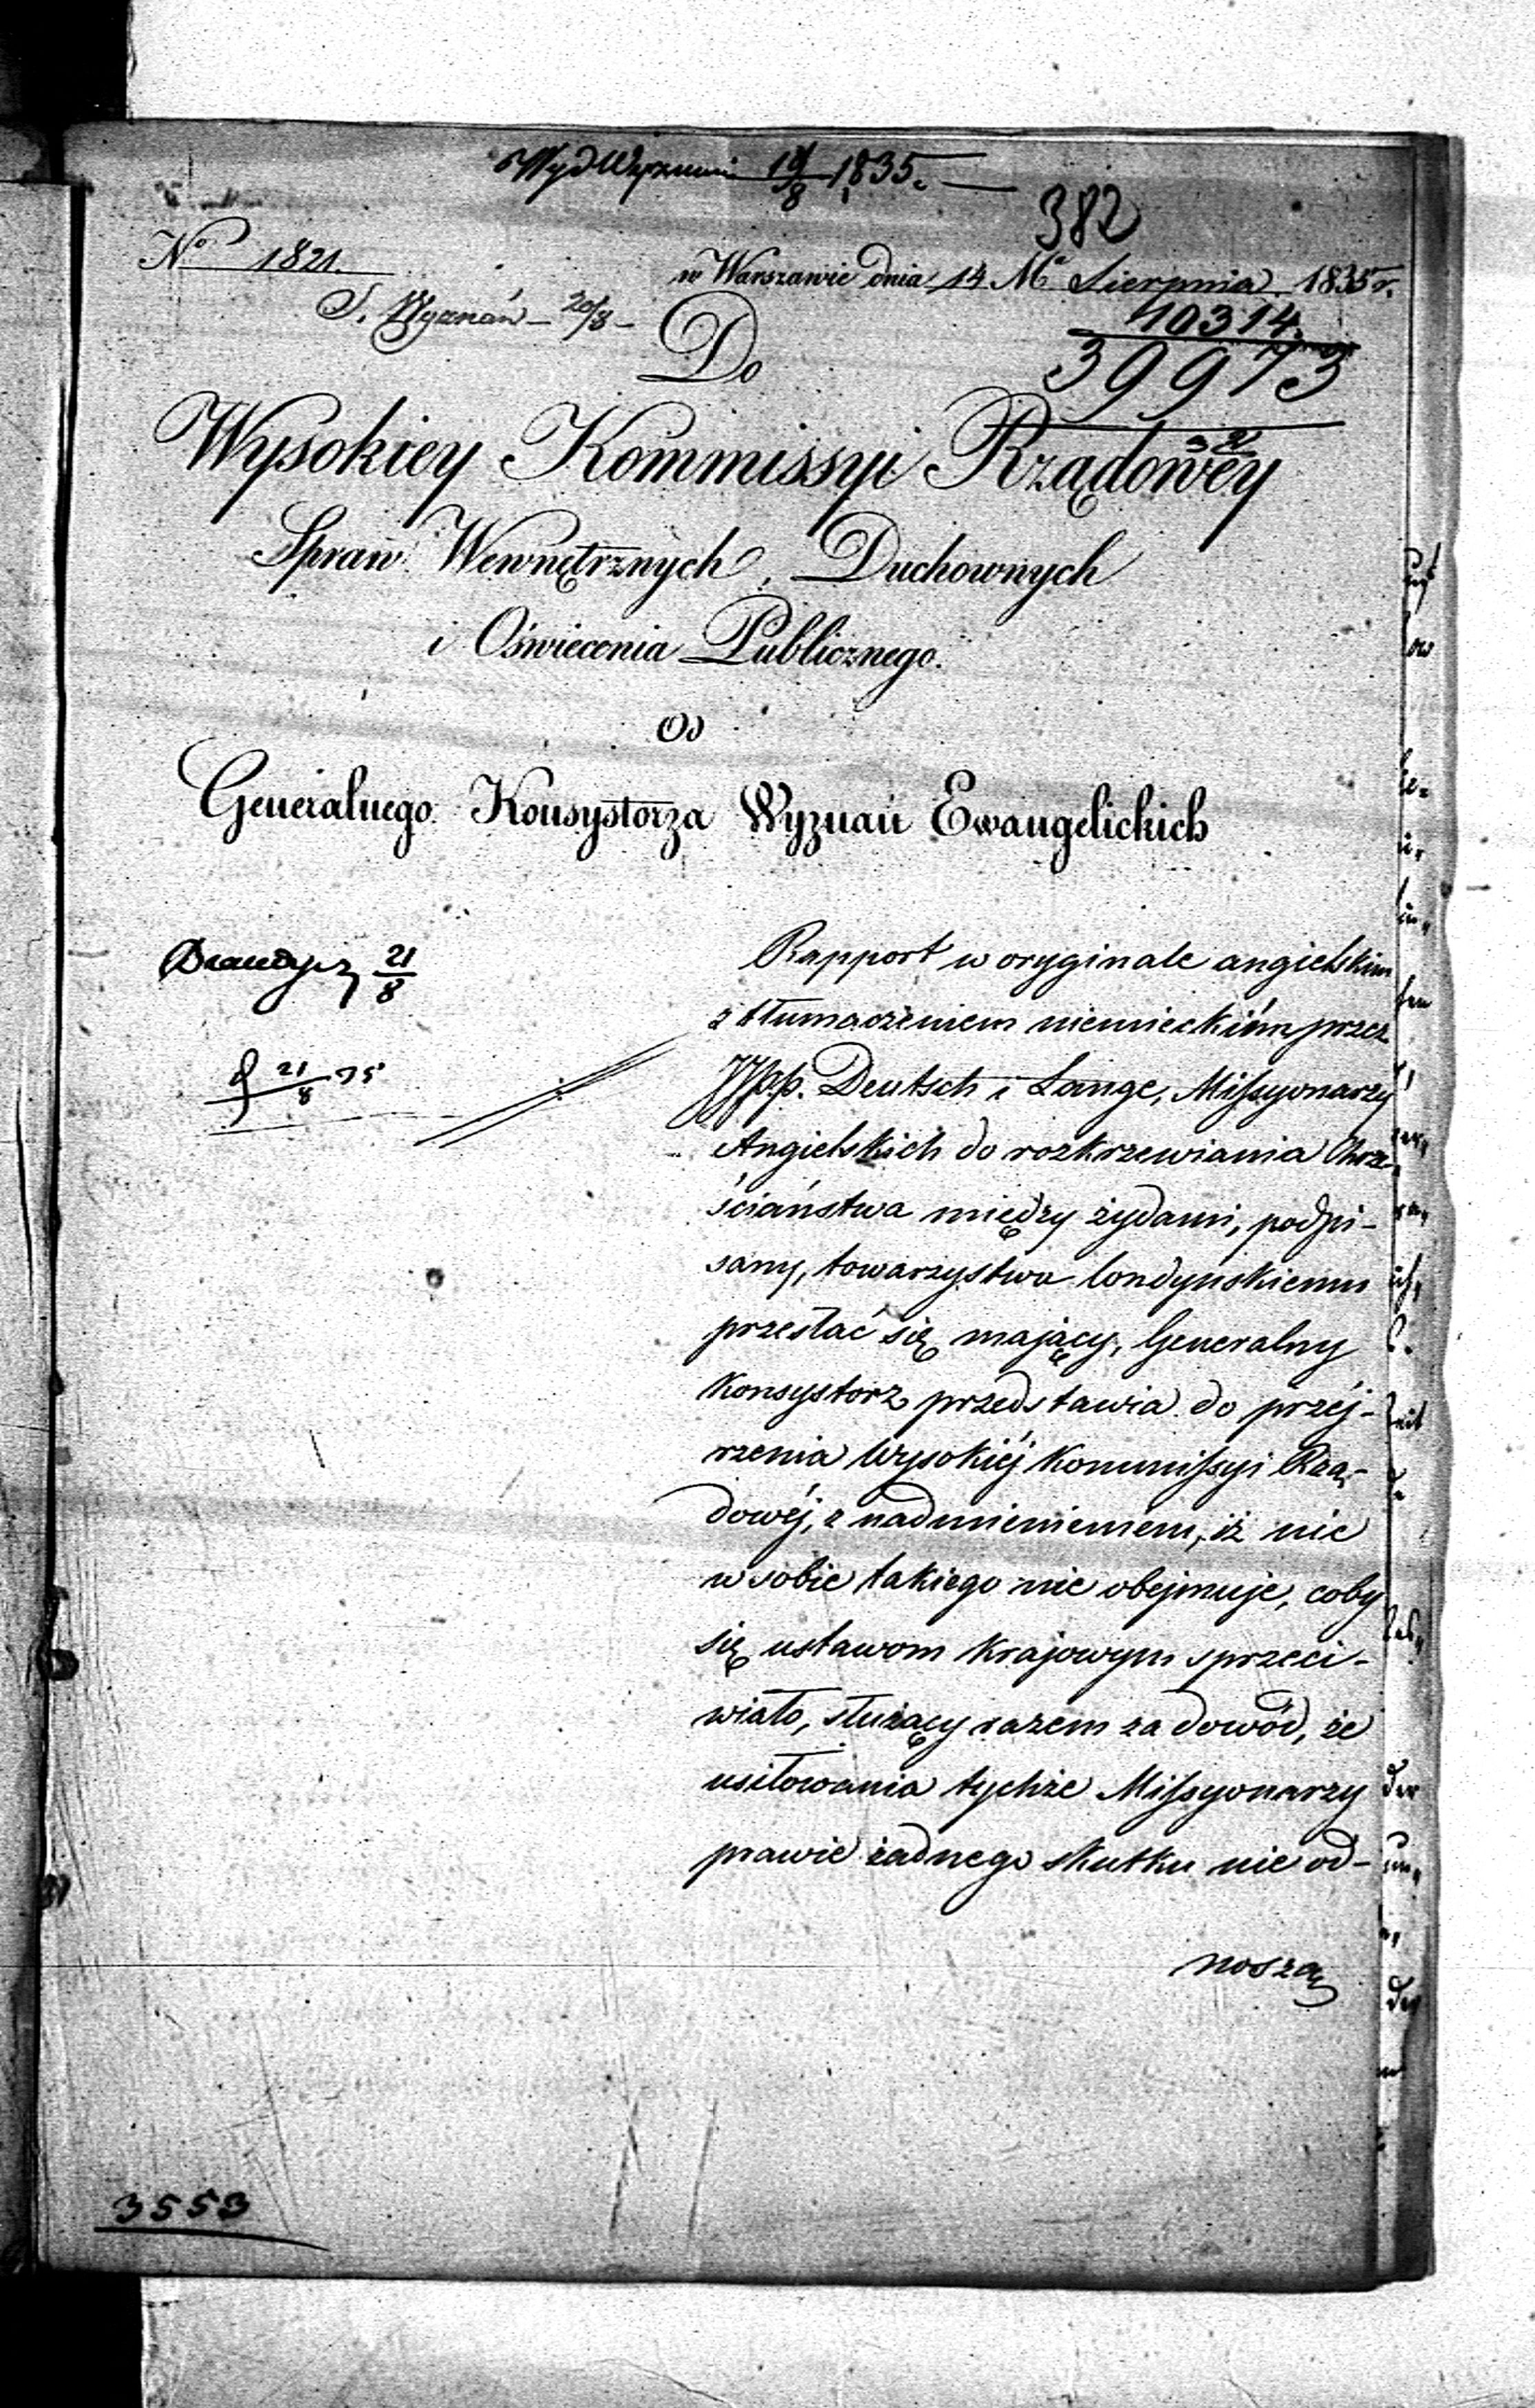 Wyd Wyznań 19/8 1835.
382
No 1821.
w Warszawie dnia 14 Ma Sierpnia 1835 r.
S. Wyznań - 20/8 -
10314.
39973
Do
Wysokiey Kommissyi Rządowey
Spraw Wewnętrznych, Duchownych
i Oświecenia Publicznego.
Od
Generalnego Konsystorza Wyznań Ewangelickich
21/8
21/8 35
Rapport w oryginale angielskim
z tłumaczeniem niemieckim przez
JJpp. Deutsch i Lange, Missyonarzy
Angielskich do rozkrzewiania Chrze-
ściaństwa między żydami, podpi-
sany, towarzystwu londyńskiemu
przesłać się mający, Generalny
Konsystorz przedstawia do przéj-
rzenia Wysokiéj Kommissyi Rzą-
dowéj, z nadmienieniem, iż nic
w sobie takiego nie obejmuje, coby
się ustawom krajowym sprzeci-
wiało, służący razem za dowód, że
usiłowania tychże Missyonarzy
prawie żadnego skutku nie od-
noszą
3553